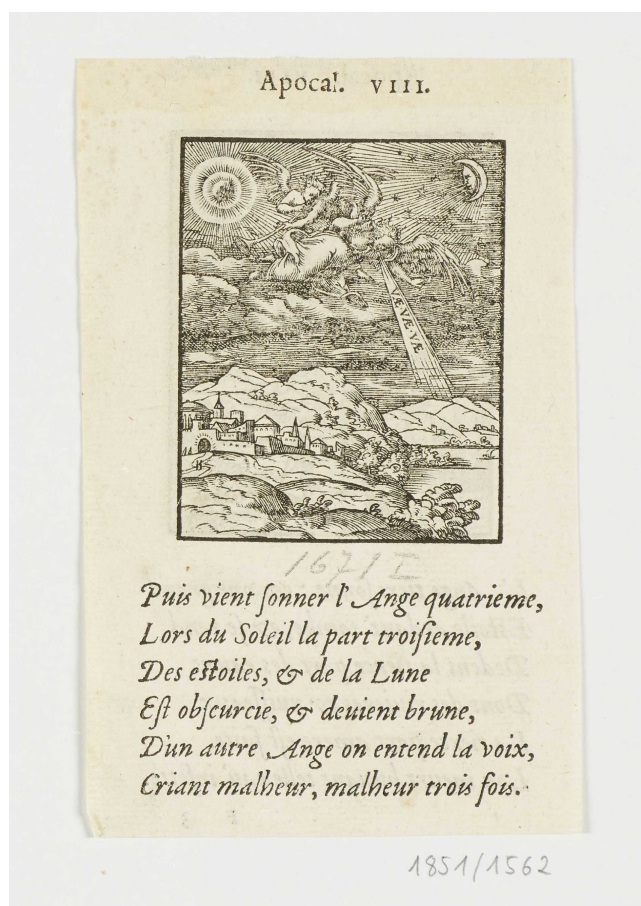 Apocal. VIII.
VÆ VÆ VÆ
1671 I
Puis vient ſonner l'Ange quatrieme,
Lors du Soleil la part troiſieme,
Des eſtoiles, & de la Lune
Eſt obſcurcie, & deuient brune,
D'un autre Ange on entend la voix,
Criant malheur, malheur trois fois.
1851/1562